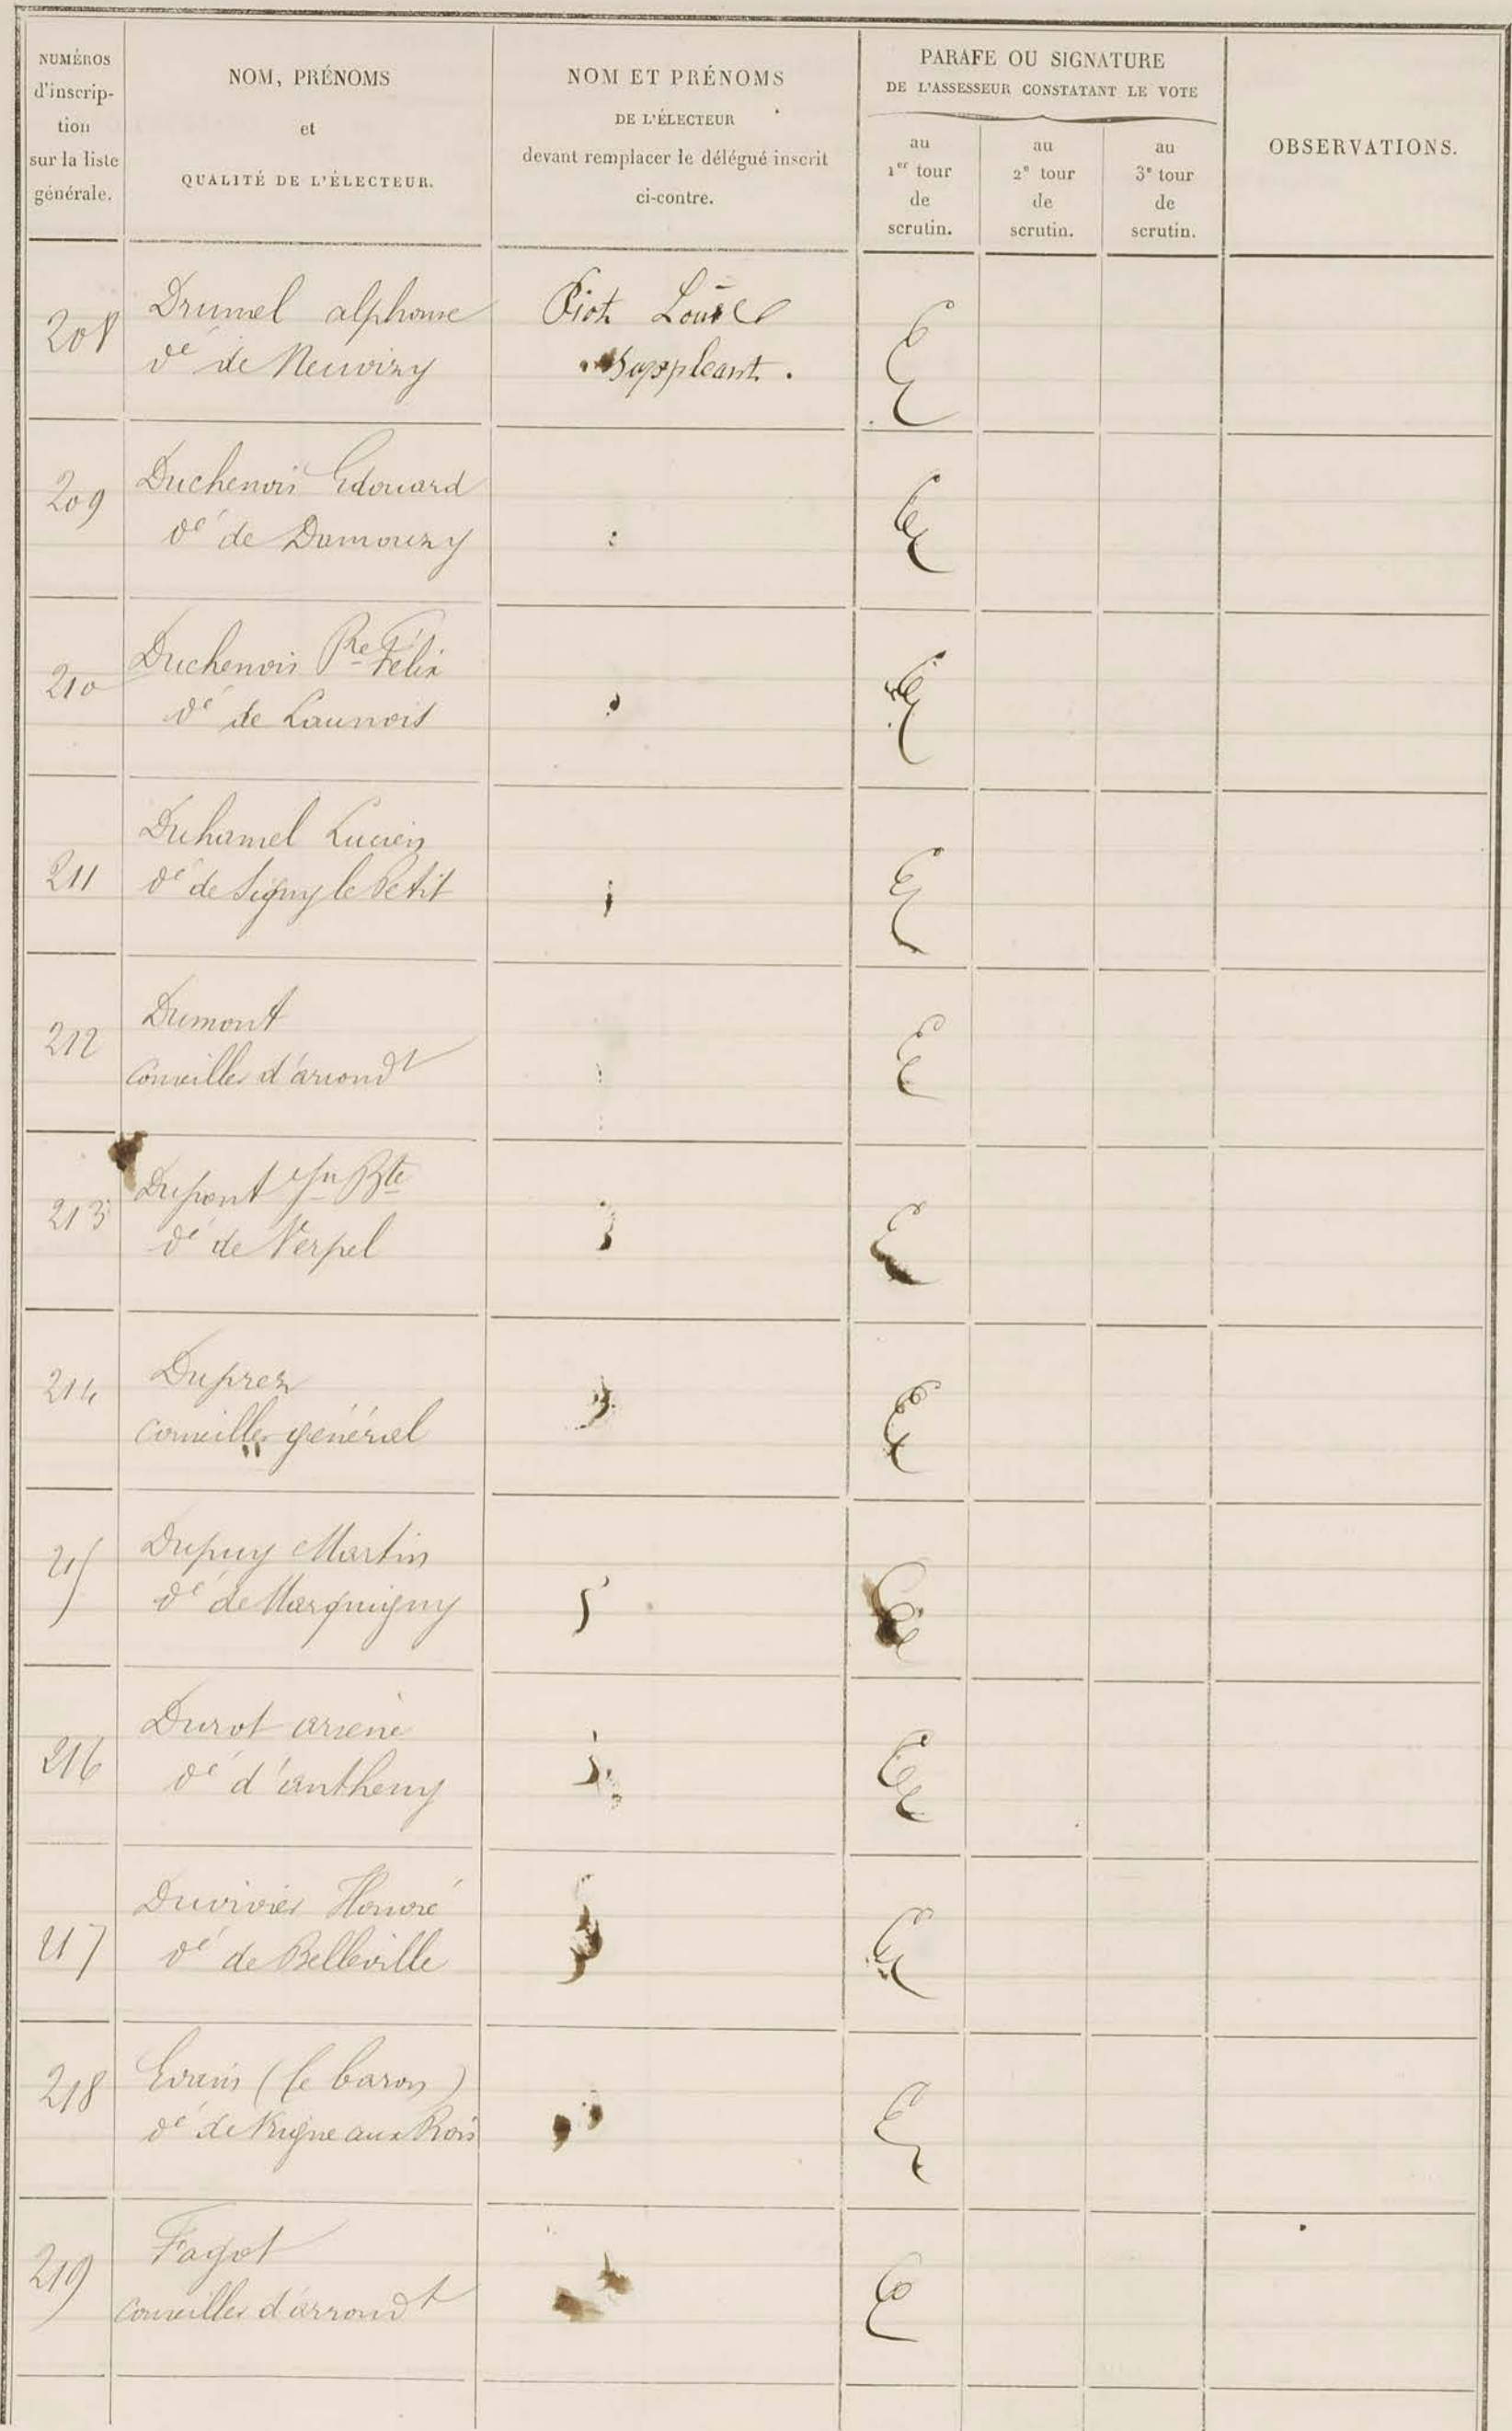 NUMÉROS
d'inscrip-
tion
sur la liste
générale.
NOM, PRÉNOMS
et
QUALITÉ DE L'ÉLECTEUR.
NOM ET PRÉNOMS
DE L'ÉLECTEUR
devant remplacer le délégué inscrit
ci-contre.
PARAFE OU SIGNATURE
DE L'ASSESSEUR CONSTATANT LE VOTE
au
1er tour
de
scrutin.
au
2e tour
de
scrutin.
au
3e tour
de
scrutin.
OBSERVATIONS.
208
Drumel alphonse
dé de Neuvizy
Piot Louis
Suppleant.
209
Duchenois Edouard
dé de Damouzy
210
Duchenois Pre Félix
dé de Launois
211
Duhamel Lucien
dé de Signy le Petit
212
Dumont
Conseiller d'arrondt
213
Dupont Jn Bte
dé de Verpel
214
Duprez
conseiller général
215
Dupuy Martin
dé de Marquigny
216
Durot arsene
dé d'antheny
217
Duvivier Honoré
dé de Belleville
218
Evain (le baron)
dé de Vrigne aux Bois
219
Fagot
conseiller d'arrondt